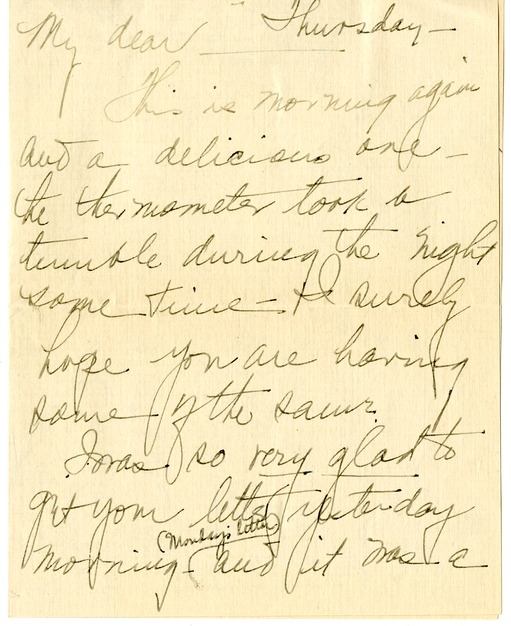 My dear — Thursday —
This is morning again
and a delicious one —
the thermometer took a
tumble during the night
some time — I surely
hope you are having
some of the same.
I was so very glad to
get your letter yesterday
(Monday's letter)
morning — and it was a